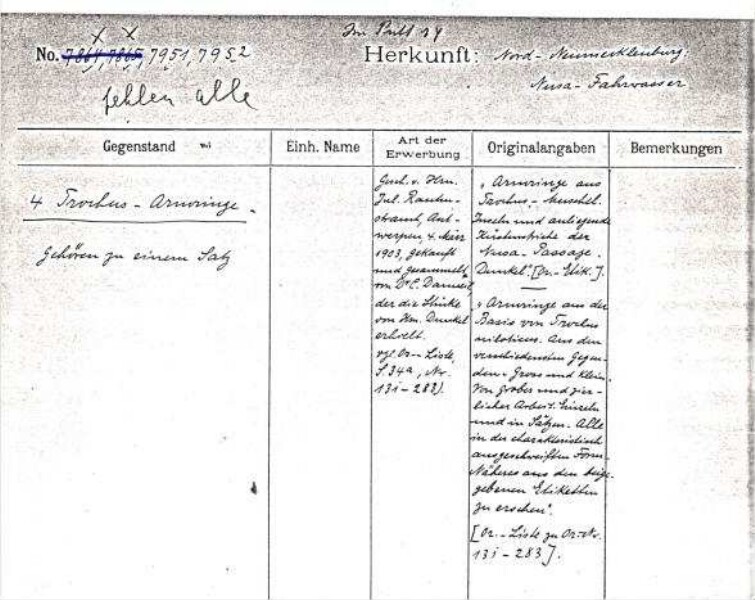 Im Pult 14
No. 7864, 7865, 7951, 7952
Herkunft: Nord-Neumecklenburg.
Nusa-Fahrwasser
fehlen alle
Gegenstand
Einh. Name
Art der Erwerbung
Originalangaben
Bemerkungen
4 Trochus-Armringe.
Gehören zu einem Satz
Gesch. v. Hrn.
Jul. Rauten-
strauch, Ant-
werpen, 4. März
1903, gekauft
und gesammelt
von Dr C.
der die Stücke
von Hrn. Dunkel
erhielt.
vgl. Or.-Liste,
S. 34a, Nr.
13i-283).
"Armringe aus
Trochus-Muschel.
Inseln und anliegende
Küstenstriche der
Nusa-Passage.
Dunkel". [Or.-Etik.].
"Armringe aus der
Basis von Trochus
niloticus. Aus den
verschiedensten Gegen-
den. Gross und Klein.
Von grober und zier-
licher Arbeit. Einzeln
und in Sätzen. Alle
in der charakteristisch
ausgeschweiften Form.
Näheres aus den beige-
gebenen Etiketten
zu ersehen".
[Or.-Liste zu Or.-Nr.
13i-283].